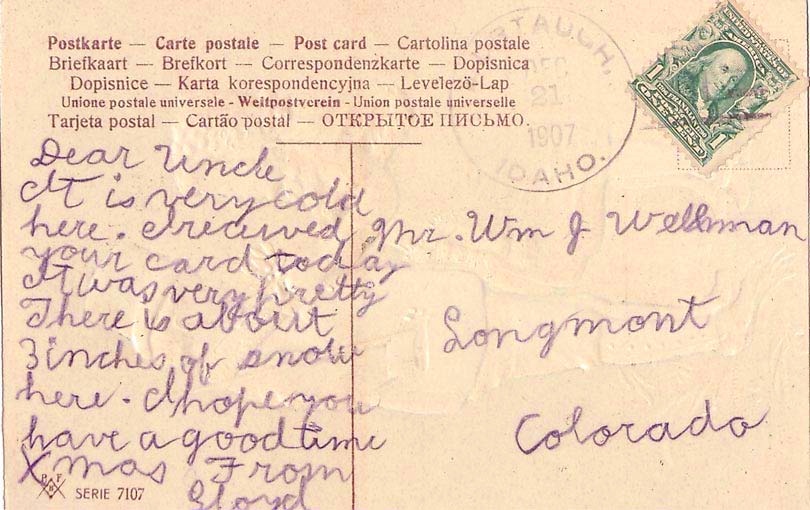 Postkarte — Carte postale — Post card — Cartolina postale
Briefkaart — Brefkort — Correspondenzkarte — Dopisnica
Dopisnice — Karta korespondencyjna — Levelező-Lap
Unione postale universale - Weltpostverein - Union postale universelle
Tarjeta postal — Cartão postal — ОТКРЫТОЕ ПИСЬМО.
DEC
21
1907
IDAHO.
1
1
Dear Uncle
It is very cold
here. I received
your card today
It was very pretty
There is about
3 inches of snow
here. I hope you
have a good time
Xmas From
Lloyd
Mr. Wm J. Wellman
Longmont
Colorado
P F B
SERIE 7107